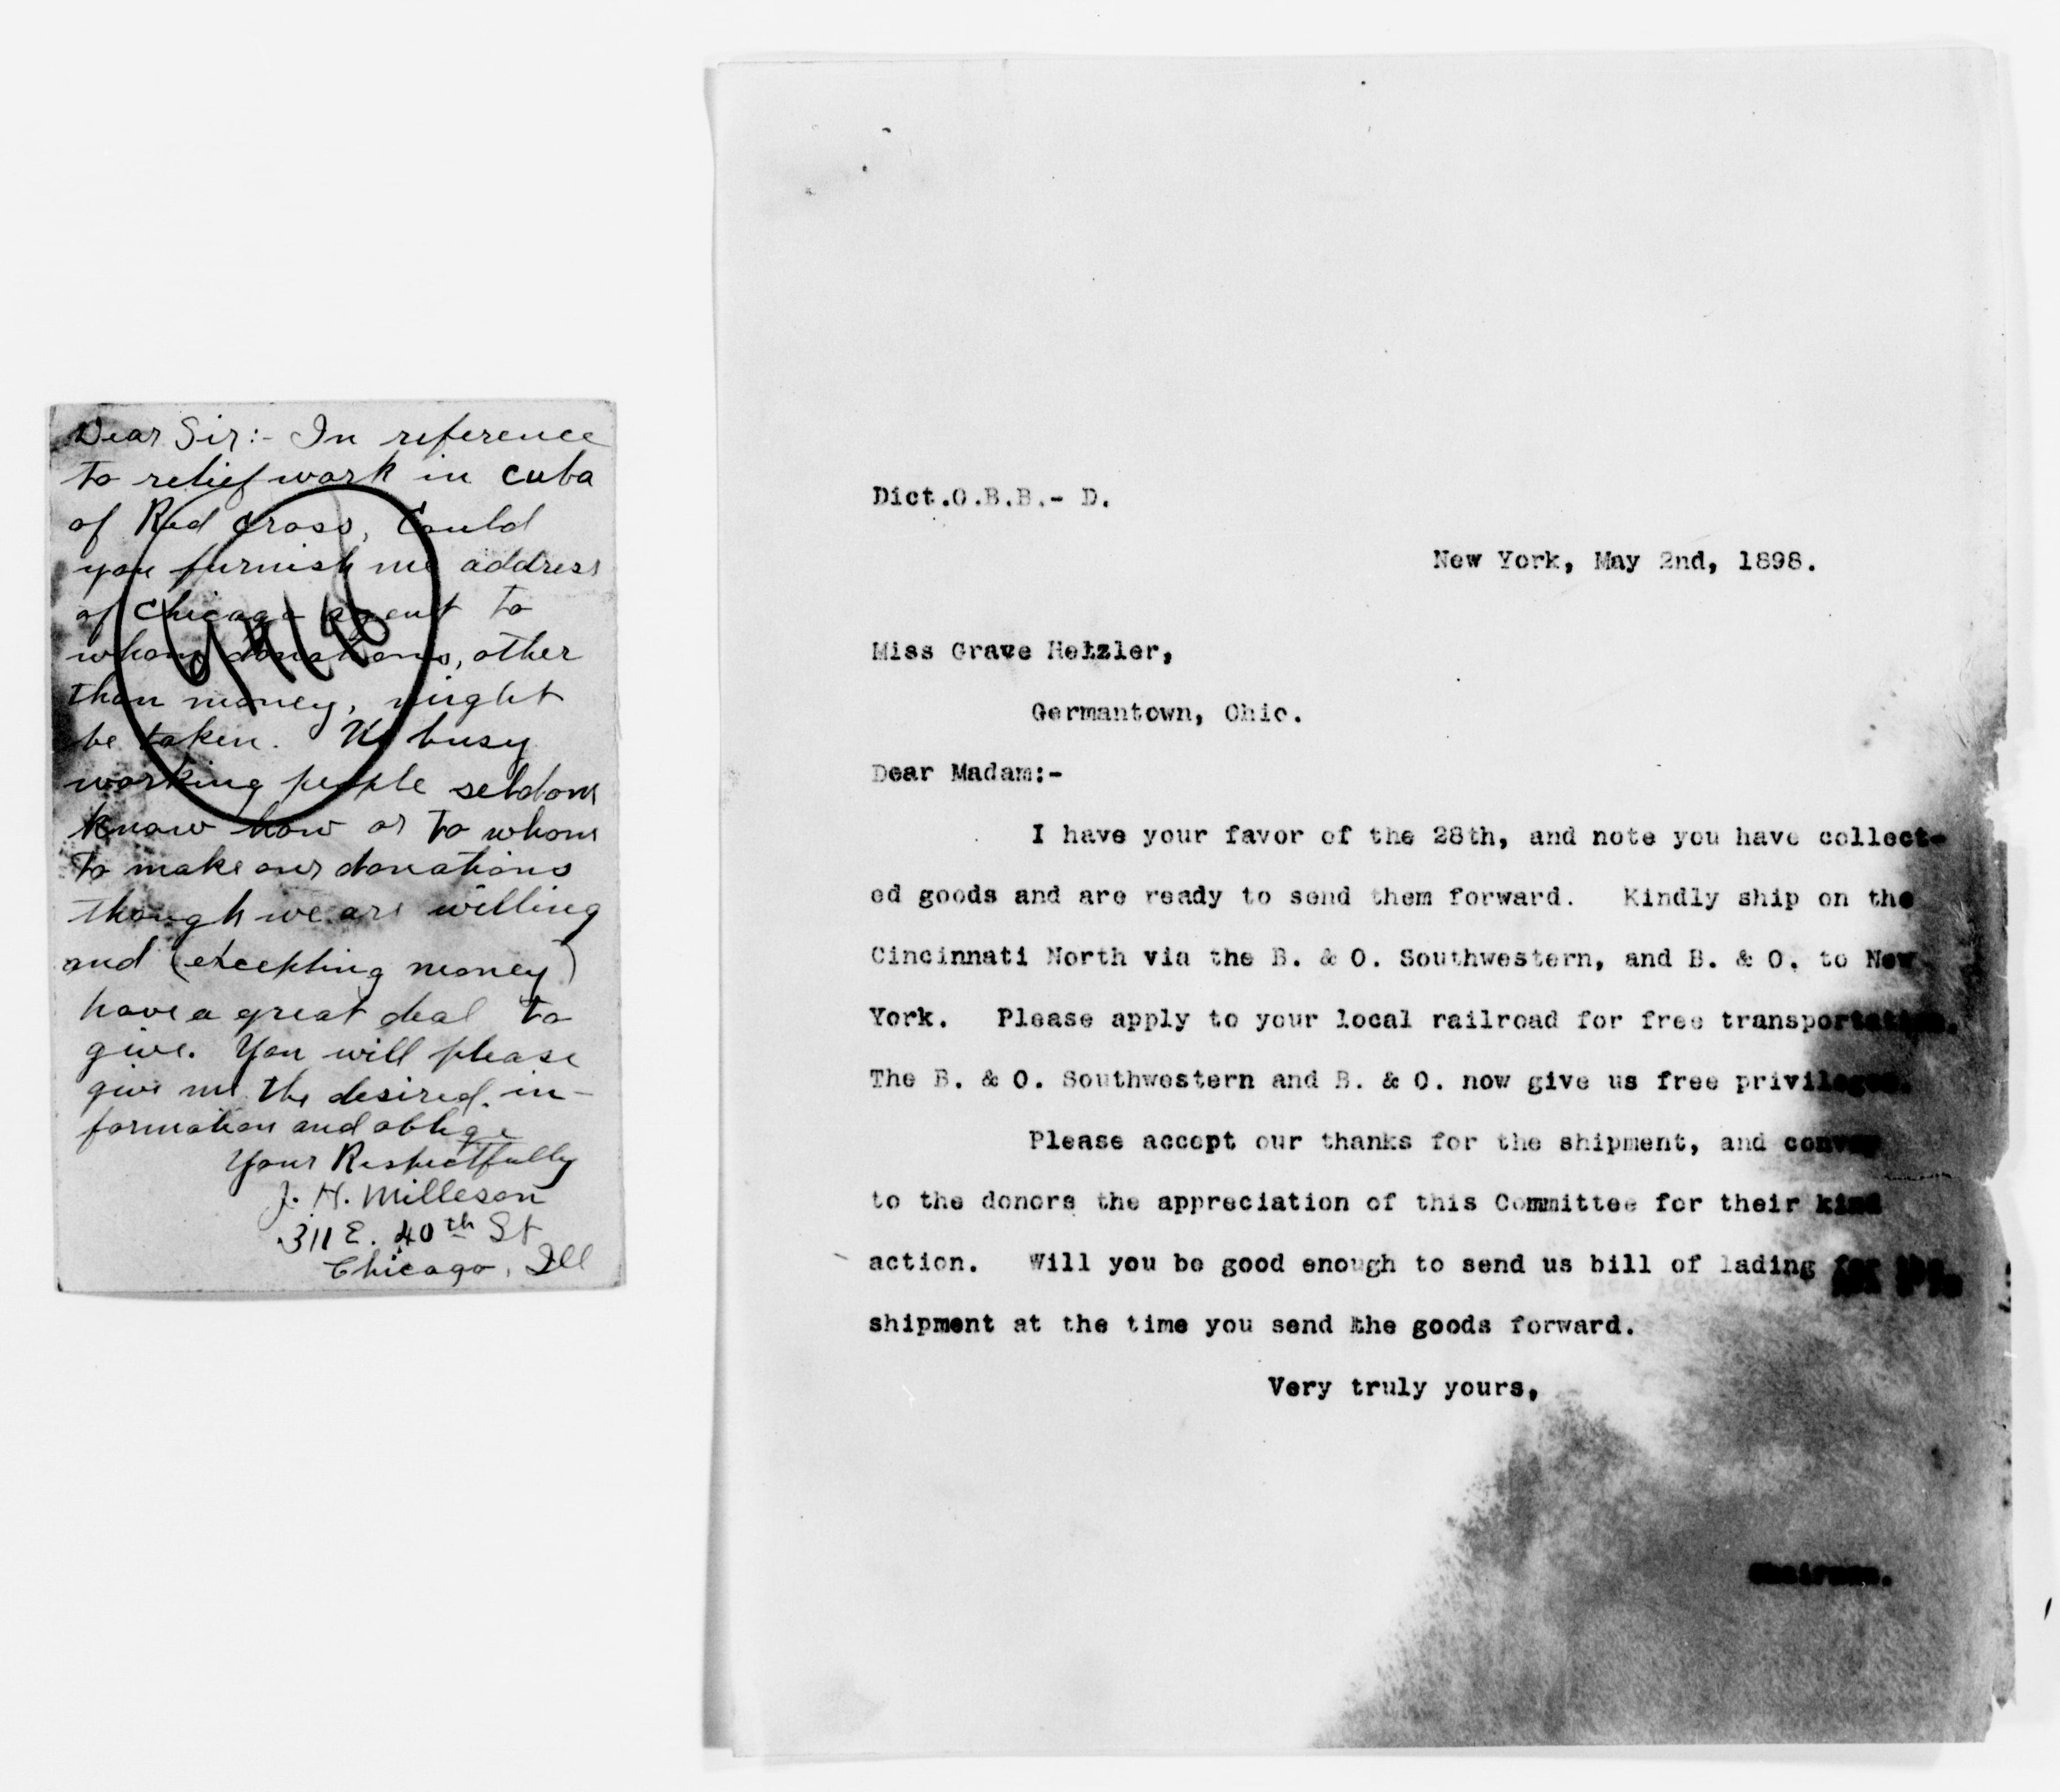 Dear Sir:- In reference
to relief work in Cuba
of Red Cross, Could
you furnish me address
of Chicago agent to
whom donations, other
than money, might
be taken. We busy
working people seldom
know how or to whom
to make our donations
though we are willing
and (excepting money)
have a great deal to
give. You will please
give me the desired in-
formation and oblige
Your Respectfully
J. H. Milleson
311 E. 40th St
Chicago, Ill
Dict.O.B.B.- D.
New York, May 2nd, 1898.
Miss Grave Hetzler,
Germantown, Ohio.
Dear Madam:-
I have your favor of the 28th, and note you have collect-
ed goods and are ready to send them forward. Kindly ship on the
Cincinnati North via the B. & O. Southwestern, and B. & O. to New
York. Please apply to your local railroad for free transportation.
The B. & O. Southwestern and B. & O. now give us free privileges.
Please accept our thanks for the shipment, and convey
to the donors the appreciation of this Committee for their kind
action. Will you be good enough to send us bill of lading for the
shipment at the time you send the goods forward.
Very truly yours,
Chairman.